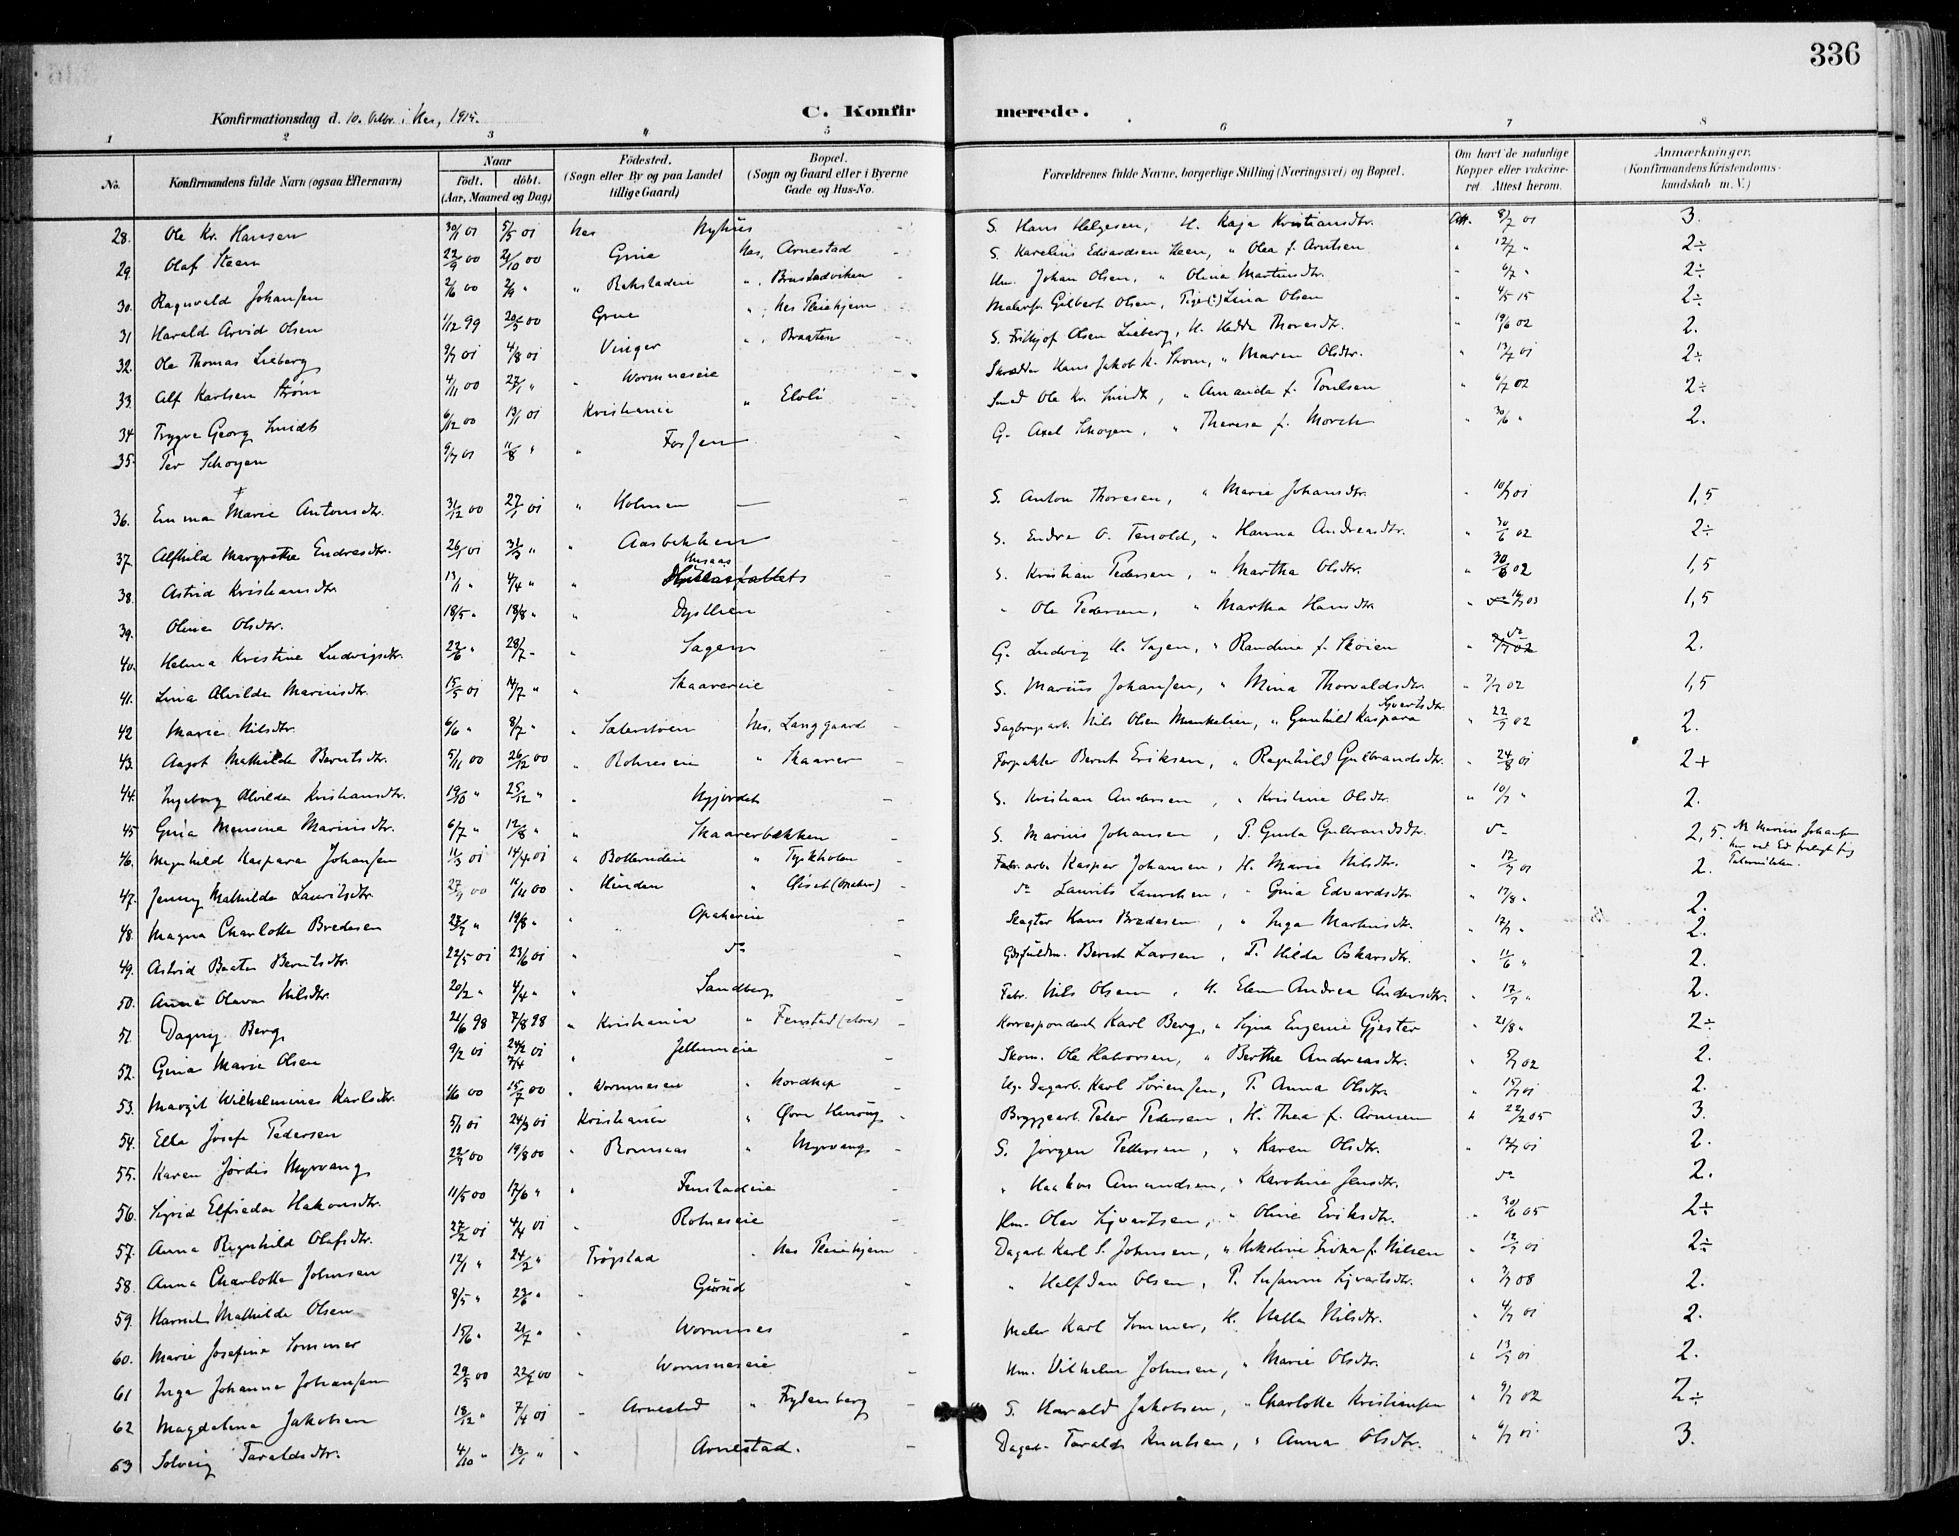 336
Konfirmationsdag d. 10. Oktbr. i Nes, 1915.
C. Konfirmerede.
1 2 3 4 5 6 7 8
No.
Konfirmandens fulde Navn (ogsaa Efternavn)
Naar
födt. döbt.
(Aar, Maaned og Dag)
Födested.
(Sogn eller By og paa Landet tillige Gaard)
Bopæl.
(Sogn og Gaard eller i Byerne Gade og Hus-No.
Forældrenes fulde Navne, borgerlige Stilling (Næringsvei) og Bopæl.
Om havt de naturlige Kopper eller vaccineret. Attest herom.
Anmærkninger.
(Konfirmandens Kristendomskundskab m. V.)
28. Ole Kr. Hansen 30/1 01 5/5 01 Nes Nyhus S. Hans Helgesen, H. Kaja Kristiansdtr. Att. 8/7 01 3.
29. Olaf Steen 22/9 00 21/10 00 Grue Nes, Arnestad S. Karelius Edvardsen Steen, " Olea f. Arntsen " 12/7 " 2÷
30. Ragnvald Johansen 2/6 00 2/9 " " Rakstadeie ", Brustadviken Um. Johan Olsen, " Olina Martinsdtr. " 6/7 " 2÷
31 Harald Arvid Olsen 1/12 99 20/5 00 Grue ", Nes Pleiehjem Malersv. Gilbert Olsen, Pige Lina Olsen " 4/5 15 2÷
32. Ole Thomas Lieberg 9/7 01 4/8 01 Vinger ", Braaten S. Frithjof Olsen Lieberg, H. Hedda Thoresdtr. " 19/6 02 2.
33. Alf Karlsen Strøm 4/11 00 27/1 " " Wormneseie Skrædder Hans Jakob K. Strøm, " Maren Olsdtr. " 13/7 01 2÷
34 Trygve Georg Smidts 6/12 00 13/1 01 Kristiania " Elvli Smed Ole Kr. Smidt, " Amanda f. Poulsen " 6/7 02 2÷
35. Per Schøyen 9/7 01 11/8 " " Fossen G. Axel Schøyen, " Theresa f. Mørch " 30/6 " 2.
36. Emma Marie Antonsdtr. 31/12 00 27/1 01 " Holmen S. Anton Thoresen, " Marie Johansdtr. " 10/7 01 1,5
37. Alfhild Margrethe Endresdtr. 26/1 01 31/3 " " Aasbekken S. Endre O. Tenold, " Hanna Andreasdtr. " 30/6 02 2÷
38. Astrid Kristiansdtr 13/1 " 4/4 " " Husaas S. Kristian Pedersen, " Martha Olsdtr. " 30/6 02 1,5
39. Oline Olsdtr. 18/5 " 18/8 " " Dysthien " Ole Pedersen, " Martha Hansdtr " 16/7 03 1,5
40. Helma Kristine Ludvigsdtr. 22/6 " 28/7 " " Sagen G. Ludvig H. Sagen, " Randine f. Skøien " do 2.
41. Lina Alvilde Mariusdtr. 15/5 01 14/7 " " Skaarereie S. Marius Johansen, " Mina Thorvaldsdtr. " 7/7 02 1,5
42 Marie Nilsdtr. 6/6 " 8/7 " " Sæterstøen Nes, Langgaard Sagbrugsarb. Nils Olsen Munkelien, " Gunhild Kaspara Syvertsdtr. " 22/7 02 2.
43. Aagot Mathilde Berntsdtr. 5/11 00 26/12 00 " Rotneseie " Skaarer Forpakter Bernt Eriksen, " Ragnhild Gulbrandsdtr. " 24/8 01 2+
44. Ingeborg Alvilde Kristiansdtr. 19/10 " 25/12 " " Nyjordet S. Kristian Andersen, " Kristine Olsdtr. " 10/7 " 2.
45 Gina Mensine Mariusdtr. 6/7 " 12/8 " " Skaarerbækken S. Marius Johansen, P. Gusta Gulbrandsdtr. do 2,5. NB Marius Johansen har ved Ed fralagt sig Paterniteten.
46. Magnhild Kaspara Johansen 11/3 01 14/4 01 " Bollerudeie " Tyskholen Fabr.arb. Kasper Johansen, H. Marie Nilsdtr. " 12/7 01 2.
47. Jenny Mathilde Lauritsdtr. 27/9 00 11/11 00 " Hunden " Giset (Opaker) do Laurits Lauritsen, " Gina Edvardsdtr " 17/8 " 2.
48. Magna Charlotte Bredesen 23/7 " 19/8 " " Opakereie Slagter Hans Bredesen, " Inga Martinsdtr. " 12/7 " 2.
49. Astrid Beate Berntsdtr. 22/5 01 23/6 01 " do Bernt Larsen, P. Hilda Oskarsdtr. " 11/6 " 2.
50. Anna Olava Nilsdtr. 20/2 " 4/4 " " Sandberg Fabr. Nils Olsen, H. Elen Andrea Andersdtr. " 12/7 " 2.
51 Dagny Berg 21/6 98 7/8 98 " Kristiania " Fenstad (store) Korrespondent Karl Berg, " Signe Eugenie Gjester " 21/8 " 2÷
52. Gina Marie Olsen 9/2 01 24/2 01 7/4 " Jellumeie Skom. Ole Halvorsen, " Berthe Andreasdtr. " 5/7 02 2.
53. Margit Wilhelmine Karlsdtr. 1/6 00 15/7 00 " Wormnesen " Nordhep Ug. Dagarb. Karl Sørensen, P. Anna Olsdtr. " 15/7 01 2.
54. Ella Josefa Pedersen 5/1 01 24/3 01 Kristiania " Øvre Henøug Bryggearb. Peter Pedersen, H. Thea f. Arnesen " 22/2 05 3.
55. Karen Jørdis Myrvang 22/7 00 19/8 00 " Romsaas " Myrvang S. Jørgen Pettersen, " Karen Olsdtr. " 12/7 01 2.
56. Sigrid Elfrida Hakonsdtr. 11/5 00 17/6 " " Fenstadeie " Haakon Amundsen, " Karoline Jensdtr. do 2.
57. Anna Ragnhild Olafsdtr. 27/2 01 4/4 01 " Rotneseie Hm. Olav Syvertsen, " Oline Eriksdtr. " 30/6 05 2÷
58. Anna Charlotte Johnsen 12/1 " 24/2 " Trøgstad " Nes Pleiehjem Dagarb. Karl S. Johnsen, " Nikoline Erika f. Nilsen " 12/7 01 2÷
59. Harriet Mathilde Olsen 8/5 " 23/6 " " Guruд " Halfdan Olsen, P. Susanne Syvertsdtr. " 3/7 08 2.
60. Marie Josefine Sommer 15/6 " 21/7 " " Wormnes Maler Karl Sommer, H. Helle Nilsdtr. " 4/7 01 2.
61 Inga Johanne Johansen 29/5 00 22/7 00 " Wormneseie Um. Vilhelm Johnsen, " Marie Olsdtr. " 13/7 01 2.
62 Magdalena Jakobsen 18/12 " 7/4 01 " Arnestad " Frydenberg S. Harald Jakobsen, " Charlotte Kristiansen " 9/7 02 2÷
63 Solveig Taraldsdtr. 4/10 " 13/1 " " Arnestad. Dagarb. Tarald Knutsen, " Anna Olsdtr. " 6/7 01 3.